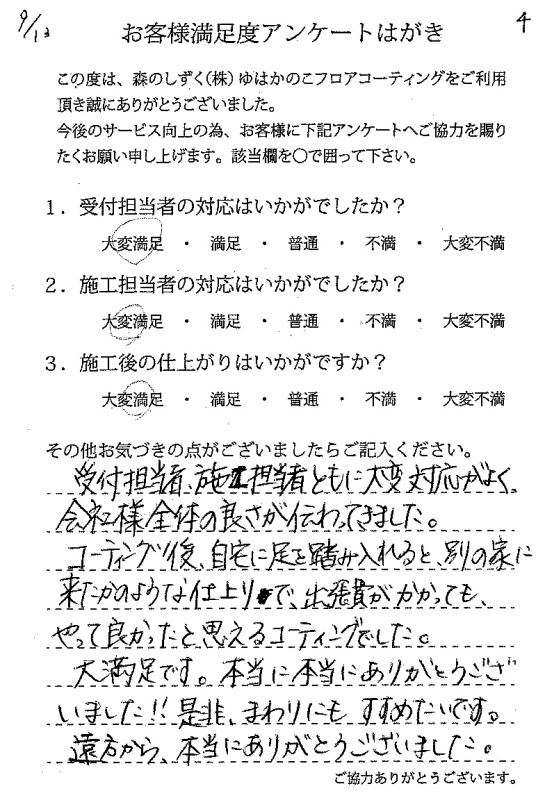 9/13
4
お客様満足度アンケートはがき
この度は、森のしずく(株)ゆはかのこフロアコーティングをご利用
頂き誠にありがとうございました。
今後のサービス向上の為、お客様に下記アンケートへご協力を賜り
たくお願い申し上げます。該当欄を○で囲って下さい。
1．受付担当者の対応はいかがでしたか？
大変満足 ・ 満足 ・ 普通 ・ 不満 ・ 大変不満
2．施工担当者の対応はいかがでしたか？
大変満足 ・ 満足 ・ 普通 ・ 不満 ・ 大変不満
3．施工後の仕上がりはいかがですか？
大変満足 ・ 満足 ・ 普通 ・ 不満 ・ 大変不満
その他お気づきの点がございましたらご記入ください。
受付担当者、施工担当者ともに大変対応がよく、
会社様全体の良さが伝わってきました。
コーティング後、自宅に足を踏み入れると、別の家に
来たかのような仕上りで、出張費がかかっても、
やって良かったと思えるコーティングでした。
大満足です。本当に本当にありがとうござ
いました!!是非、まわりにもすすめたいです。
遠方から、本当にありがとうございました。
ご協力ありがとうございます。